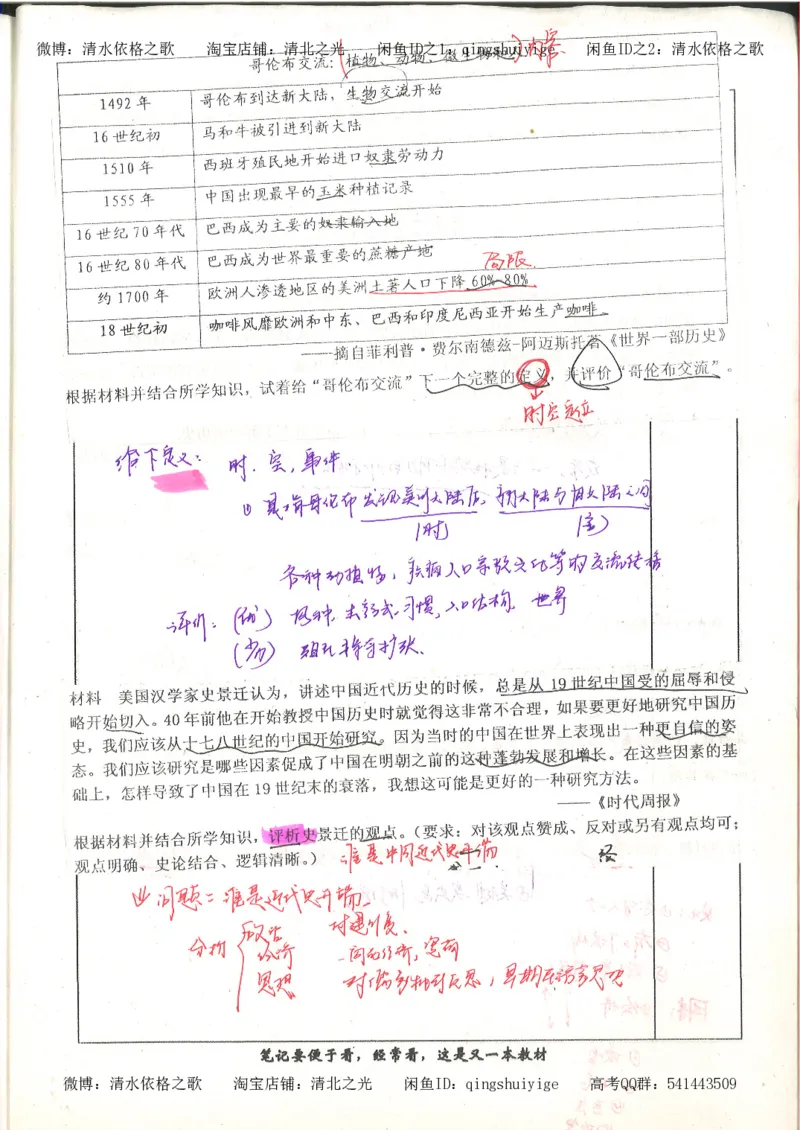 微博：清水依格之歌 淘宝店铺：清北之光 闲鱼ID之1：qingshuiyige 闲鱼ID之2：清水依格之歌
哥伦布交流：(植物、动物、微生物
1492 年 哥伦布到达新大陆，生物交流开始
16 世纪初 马和牛被引进到新大陆
1510 年 西班牙殖民地开始进口奴隶劳动力
1555 年 中国出现最早的玉米种植记录
16 世纪 70 年代 巴西成为主要的奴隶输入地
16 世纪 80 年代 巴西成为世界最重要的蔗糖产地
局限
约 1700 年 欧洲人渗透地区的美洲土著人口下降 60%-80%
18 世纪初 咖啡风靡欧洲和中东、巴西和印度尼西亚开始生产咖啡
——摘自菲利普·费尔南德兹-阿迈斯托著《世界一部历史》
根据材料并结合所学知识，试着给“哥伦布交流”下一个完整的定义，并评价“哥伦布交流”。
时空定位
给下定义： 时、空，事件
① 是指哥伦布发现美洲大陆后，新大陆与旧大陆之间
(时) (空)
各种动植物，疾病人口宗教文化等的交流转移
评价：(优) 生活习惯，人口结构，世界
殖民掠夺扩张.
材料 美国汉学家史景迁认为，讲述中国近代历史的时候，总是从 19 世纪中国受的屈辱和侵
略开始切入。40 年前他在开始教授中国历史时就觉得这非常不合理，如果要更好地研究中国历
史，我们应该从十七八世纪的中国开始研究。因为当时的中国在世界上表现出一种更自信的姿
态。我们应该研究是哪些因素促成了中国在明朝之前的这种蓬勃发展和增长。在这些因素的基
础上，怎样导致了中国在 19 世纪末的衰落，我想这可能是更好的一种研究方法。
——《时代周报》
根据材料并结合所学知识，评析史景迁的观点。（要求：对该观点赞成、反对或另有观点均可；
观点明确、史论结合、逻辑清晰。） 谁是中国近代史开端
(1) 问题：谁是近代史开端.
分析 政治
经济
思想 对儒学批判反思，早期启蒙思想
笔记要便于看，经常看，这是又一本教材
微博：清水依格之歌 淘宝店铺：清北之光 闲鱼ID：qingshuiyige 高考QQ群：541443509